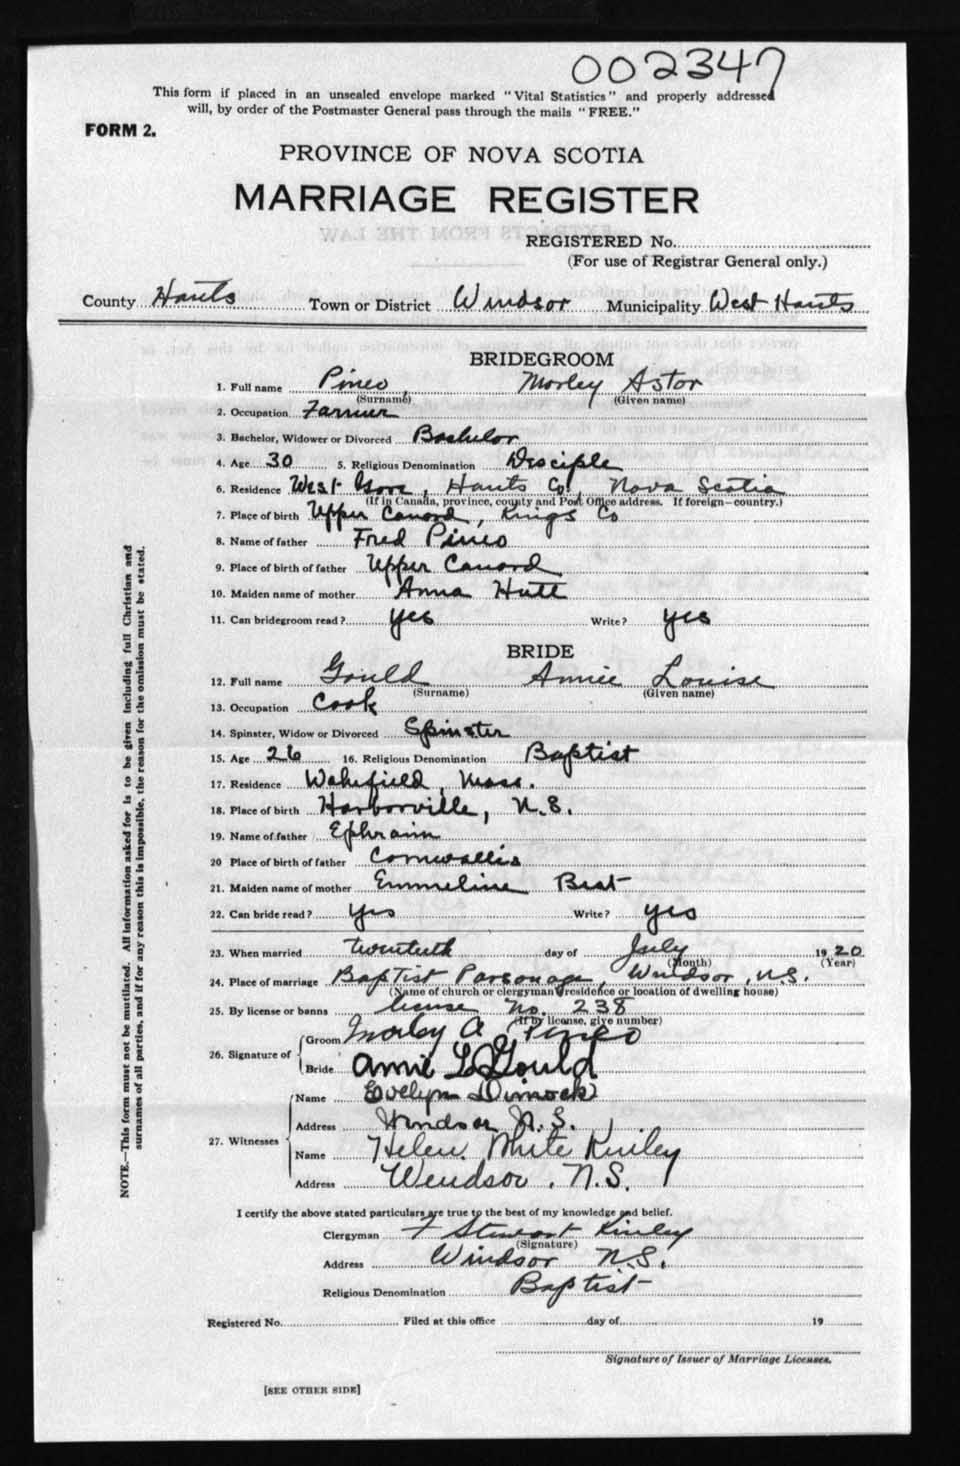 002347
This form if placed in an unsealed envelope marked "Vital Statistics" and properly addressed
will, by order of the Postmaster General pass through the mails "FREE."
FORM 2.
PROVINCE OF NOVA SCOTIA
MARRIAGE REGISTER
EXTRACTS FROM THE LAW
REGISTERED No.
(For use of Registrar General only.)
County Hants Town or District Windsor Municipality West Hants
BRIDEGROOM
1. Full name Pineo, Morley Astor
(Surname) (Given name)
2. Occupation Farmer
3. Bachelor, Widower or Divorced Bachelor
4. Age 30 5. Religious Denomination Disciple
6. Residence West Gore, Hants Co, Nova Scotia
(If in Canada, province, county and Post Office address. If foreign—country.)
7. Place of birth Upper Canard, Kings Co
8. Name of father Fred Pineo
9. Place of birth of father Upper Canard
10. Maiden name of mother Anna Hutt
11. Can bridegroom read? yes Write? yes
BRIDE
12. Full name Gould Annie Louise
(Surname) (Given name)
13. Occupation Cook
14. Spinster, Widow or Divorced Spinster
15. Age 26 16. Religious Denomination Baptist
17. Residence Wakefield, Mass.
18. Place of birth Harborville, N.S.
19. Name of father Ephraim
20 Place of birth of father Cornwallis
21. Maiden name of mother Emmeline Best
22. Can bride read? yes Write? yes
23. When married twentieth day of July 1920
(Month) (Year)
24. Place of marriage Baptist Parsonage, Windsor, N.S.
(Name of church or clergyman residence or location of dwelling house)
25. By license or banns license No. 238
(If by license, give number)
26. Signature of Groom Morley A Pineo
Bride Annie L Gould
27. Witnesses Name Evelyn Dimock
Address Windsor N.S.
Name Helen White Kinley
Address Windsor, N.S.
I certify the above stated particulars are true to the best of my knowledge and belief.
Clergyman F Stewart Kinley
(Signature)
Address Windsor N.S.
Religious Denomination Baptist
Registered No. Filed at this office day of 19
Signature of Issuer of Marriage Licenses.
[SEE OTHER SIDE]
NOTE.—This form must not be mutilated. All information asked for is to be given including full Christian and
surnames of all parties, and if for any reason this is impossible, the reason for the omission must be stated.